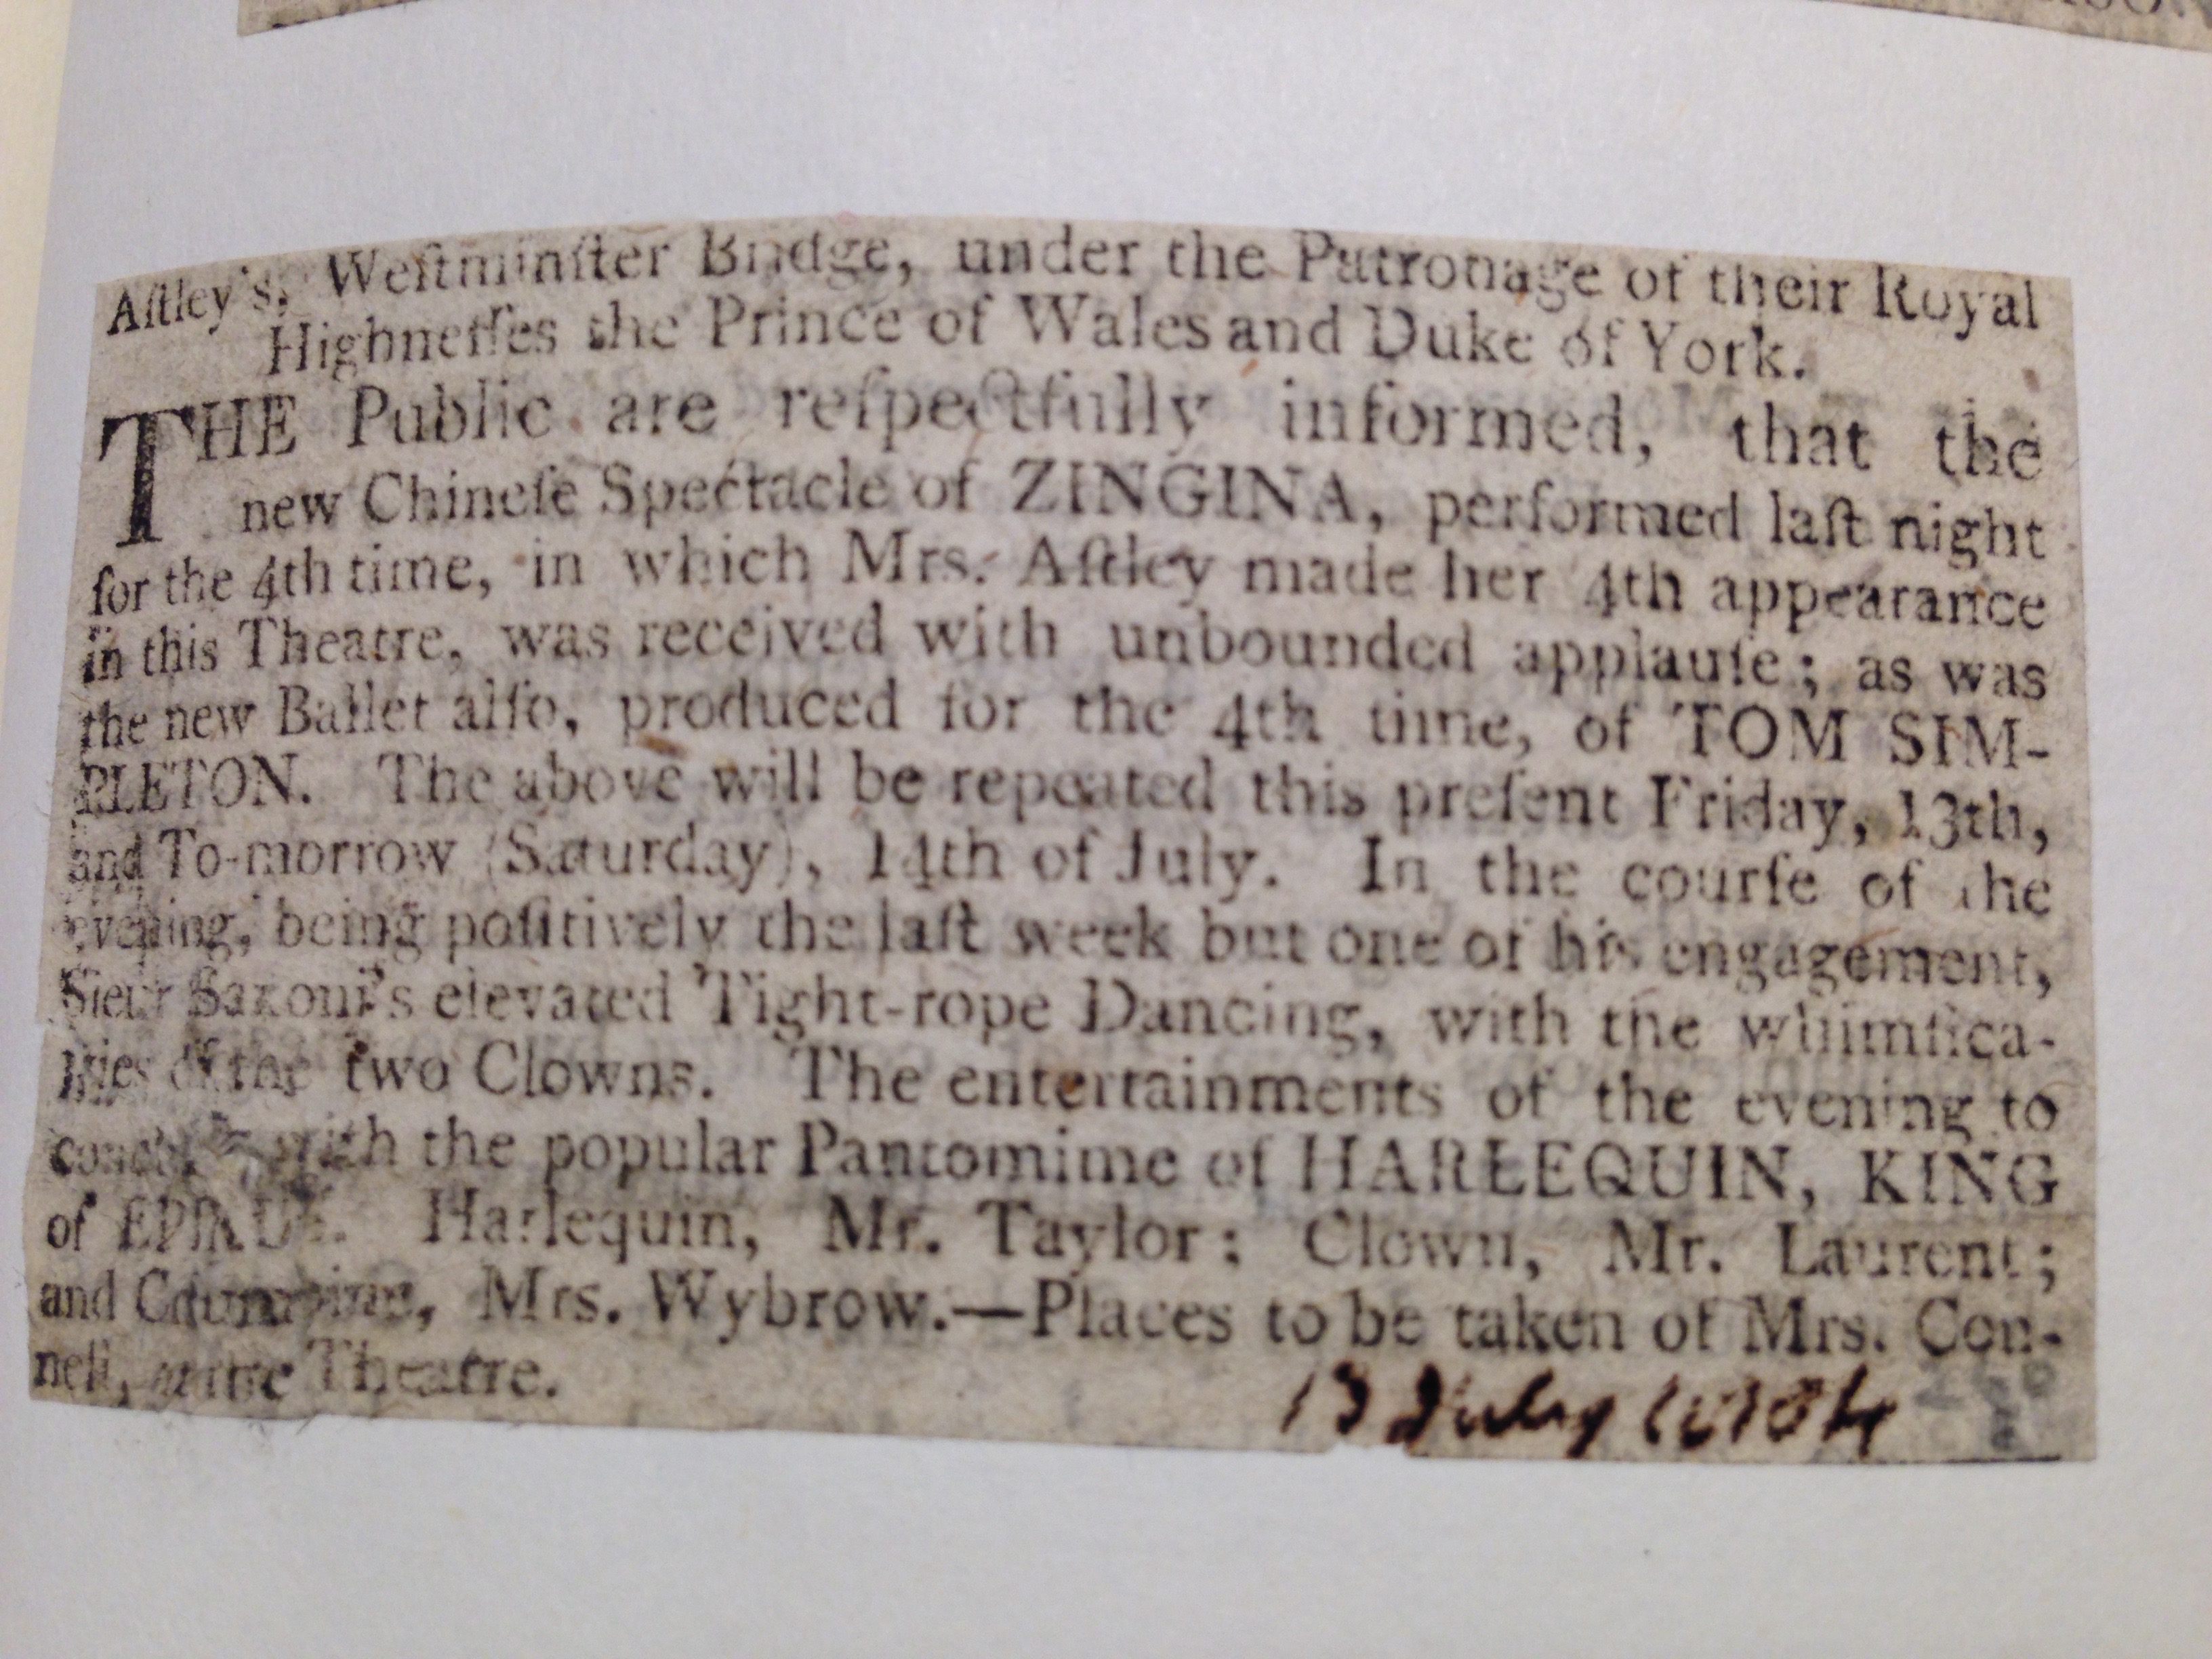 Aſtley's, Weſtminſter Bridge, under the Patronage of their Royal
Highneſſes the Prince of Wales and Duke of York.
THE Public are reſpectfully informed, that the
new Chineſe Spectacle of ZINGINA, performed laſt night
for the 4th time, in which Mrs. Aſtley made her 4th appearance
in this Theatre, was received with unbounded applauſe; as was
the new Ballet alſo, produced for the 4th time, of TOM SIM-
PLETON. The above will be repeated this preſent Friday, 13th,
and To-morrow (Saturday), 14th of July. In the courſe of the
evening, being poſitively the laſt week but one of his engagement,
Sieur Saxoni's elevated Tight-rope Dancing, with the whimſica-
lities of the two Clowns. The entertainments of the evening to
with the popular Pantomime of HARLEQUIN, KING
of Harlequin, Mr. Taylor; Clown, Mr. Laurent;
and Mrs. Wybrow.—Places to be taken of Mrs. Con-
nell, at the Theatre.
13 July 1804